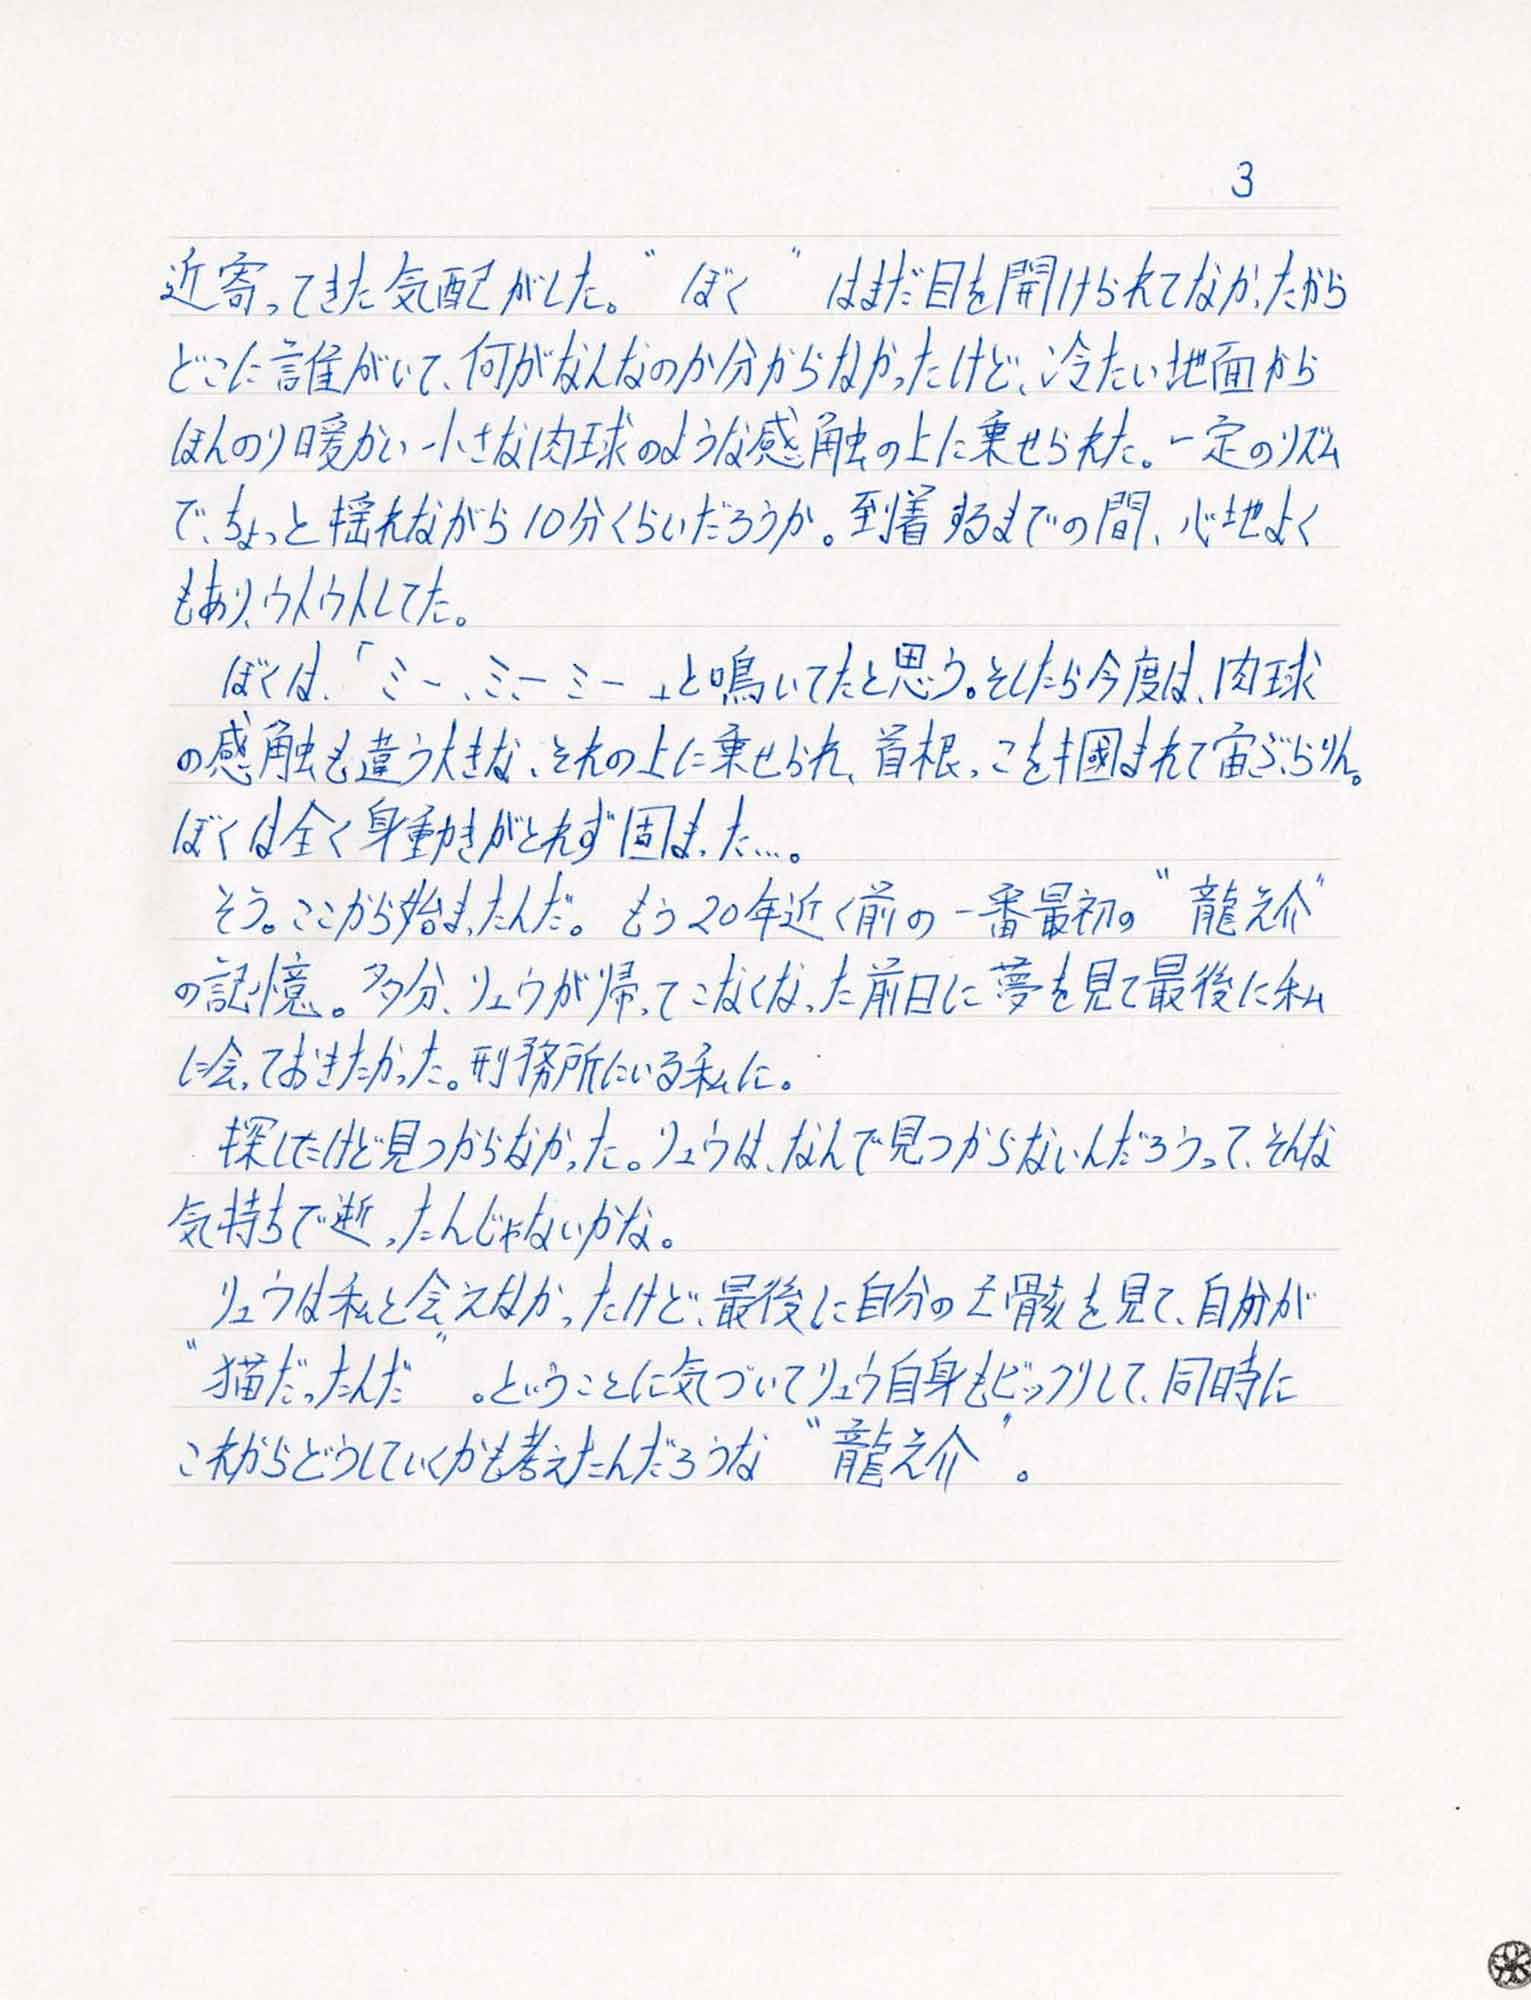 3
近寄ってきた気配がした。“ぼく”はまだ目を開けられてなかったから
どこに誰がいて、何がなんなのか分からなかったけど、冷たい地面から
ほんのり暖かい小さな肉球のような感触の上に乗せられた。一定のリズム
で、ちょっと揺れながら10分くらいだろうか。到着するまでの間、心地よく
もあり、ウトウトしてた。
ぼくは、「ミー、ミーミー」と鳴いてたと思う。そしたら今度は、肉球
の感触も違う大きな、それの上に乗せられ、首根っこを掴まれて宙ぶらりん。
ぼくは全く身動きがとれず固まった…。
そう。ここから始まったんだ。もう20年近く前の一番最初の“龍之介”
の記憶。多分、リュウが帰ってこなくなった前日に夢を見て最後に私
に会っておきたかった。刑務所にいる私に。
探したけど見つからなかった。リュウは、なんで見つからないんだろうって、そんな
気持ちで逝ったんじゃないかな。
リュウは私と会えなかったけど、最後に自分の亡骸を見て、自分が
“猫だったんだ”。ということに気づいてリュウ自身もビックリして、同時に
これからどうしていくかも考えたんだろうな“龍之介”。